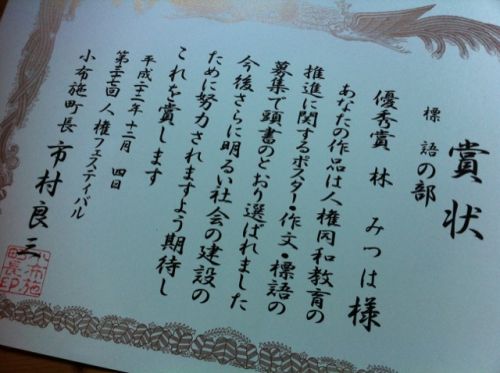 賞状
標語の部
優秀賞 林 みつは様
あなたの作品は人権同和教育の
推進に関するポスター・作文・標語の
募集で頭書のとおり選ばれました
今後さらに明るい社会の建設の
ために努力されますよう期待し
これを賞します
平成二十二年十二月 四日
人権フェスティバル
小布施町長 市村良三
小布施
町長印